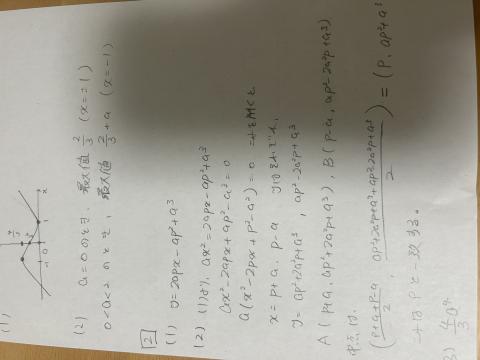 (1)
(2) a=0のとき、最大値 2/3 (x=±1)
0<a<2のとき、最大値 2/3+a (x=-1)
[2]
(1) y=2apx-ap²+a³
(2) (1)より、ax²=2apx-ap²+a³
ax²-2apx+ap²-a³=0
a(x²-2px+p²-a²)=0
x=p+a, p-a
y=ap²+2a²p+a³, ap²-2a²p+a³
A(p+a, ap²+2a²p+a³), B(p-a, ap²-2a²p+a³)
中点は、
(p+a+p-a/2, ap²+2a²p+a³+ap²-2a²p+a³/2)=(p, ap²+a³)
Pと一致する。
3) 4/3a⁴